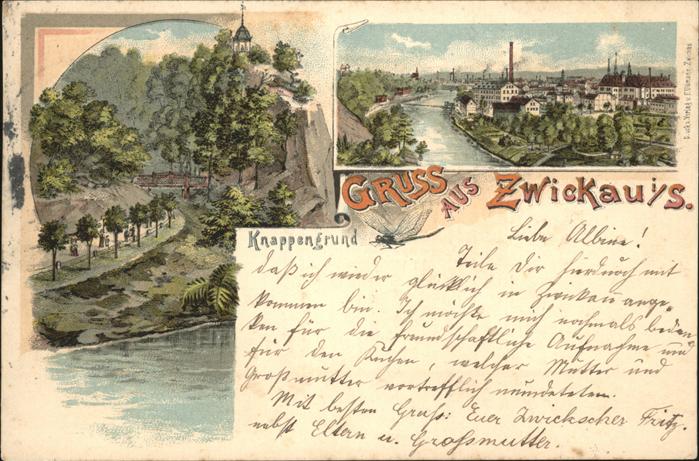 GRUSS AUS Zwickau i/S.
Knappengrund
Liebe Albine!
Teile Dir hierdurch mit
daß ich wieder glücklich in Zwickau ange-
kommen bin. Ich möchte mich nochmals bedan-
ken für die freundschaftliche Aufnahme und
für den Kuchen, welcher Mutter und
Großmutter vortrefflich mundeten.
Mit besten Gruß: Euer Zwickscher Fritz,
nebst Eltern u. Grossmutter.